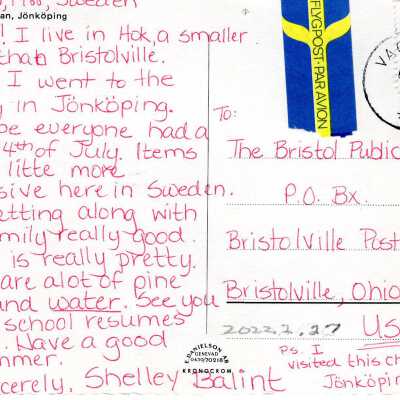 Sweden
an, Jönköping
! I live in Hok, a smaller
than Bristolville.
I went to the
in Jönköping.
pe everyone had a
4th of July. Items
litte more
sive here in Sweden.
etting along with
mily really good.
is really pretty.
are alot of pine
and water. See you
school resumes
. Have a good
mmer.
cerely, Shelley Balint
FLYGPOST·PAR AVION
VAG
To:
The Bristol Public
P.O. Bx.
Bristolville Post
Bristolville, Ohio
US
2022.2.27
P.S. I
visited this ch
Jönköpin
E. DANIELSON AB
GENEVAD
0430/70218
KRONOCROM